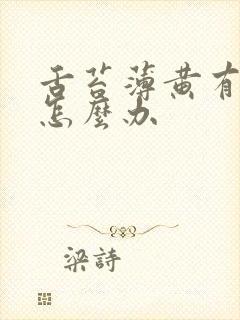 舌苔薄黄有
怎麼办
梁詩